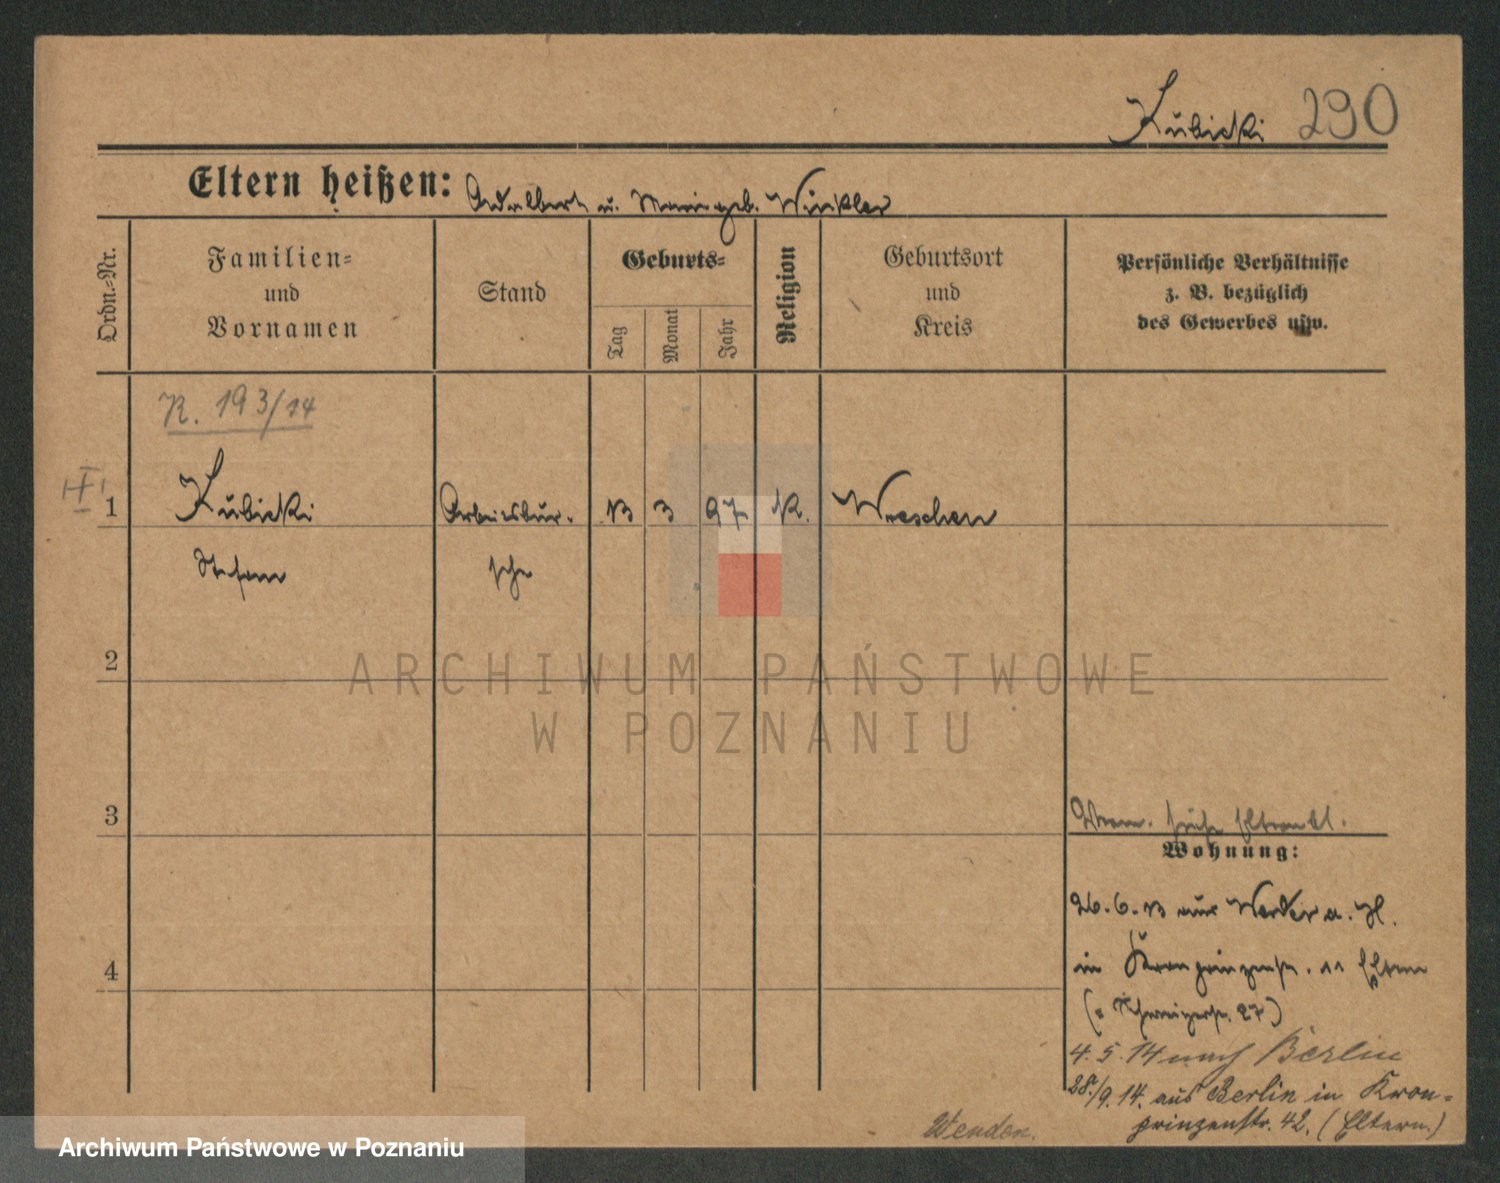 Kubicki 290
Eltern heißen: Adalbert u. Marie geb. Winkler
Ordn.-Nr.
Familien-
und
Vornamen
Stand
Geburts-
Tag
Monat
Jahr
Religion
Geburtsort
und
Kreis
Persönliche Verhältnisse
z. B. bezüglich
des Gewerbes usw.
R. 193/14
1 Kubicki Arbeitsbur- 13 3 97 K. Wreschen
Stefan sche
2
ARCHIWUM PAŃSTWOWE
W POZNANIU
3
siehe Elternbl.
Wohnung:
26.6.13 aus
in Kronprinzenstr. Eltern
4
4.5.14 nach Berlin
28./9.14. aus Berlin in Kron-
prinzenstr. 42. (Eltern.)
Wenden.
Archiwum Państwowe w Poznaniu